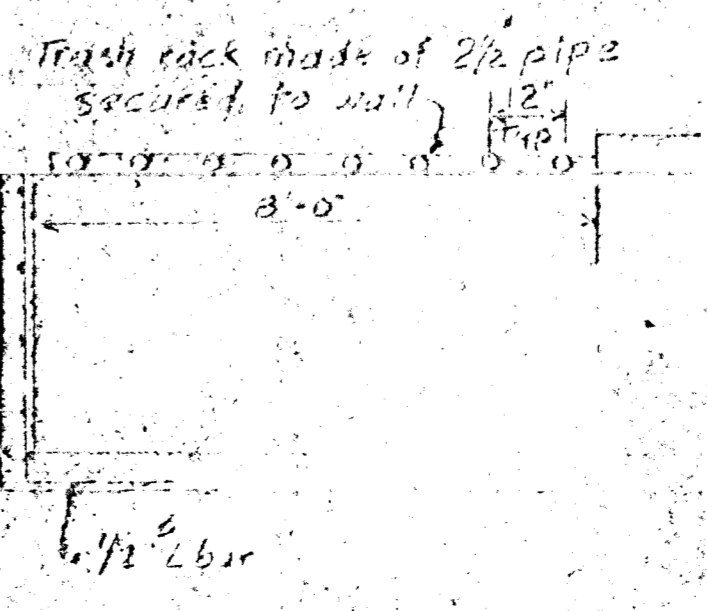 Trash rack made of 2½" pipe
secured to wall
12"
Typ
8'-0"
½" L bar